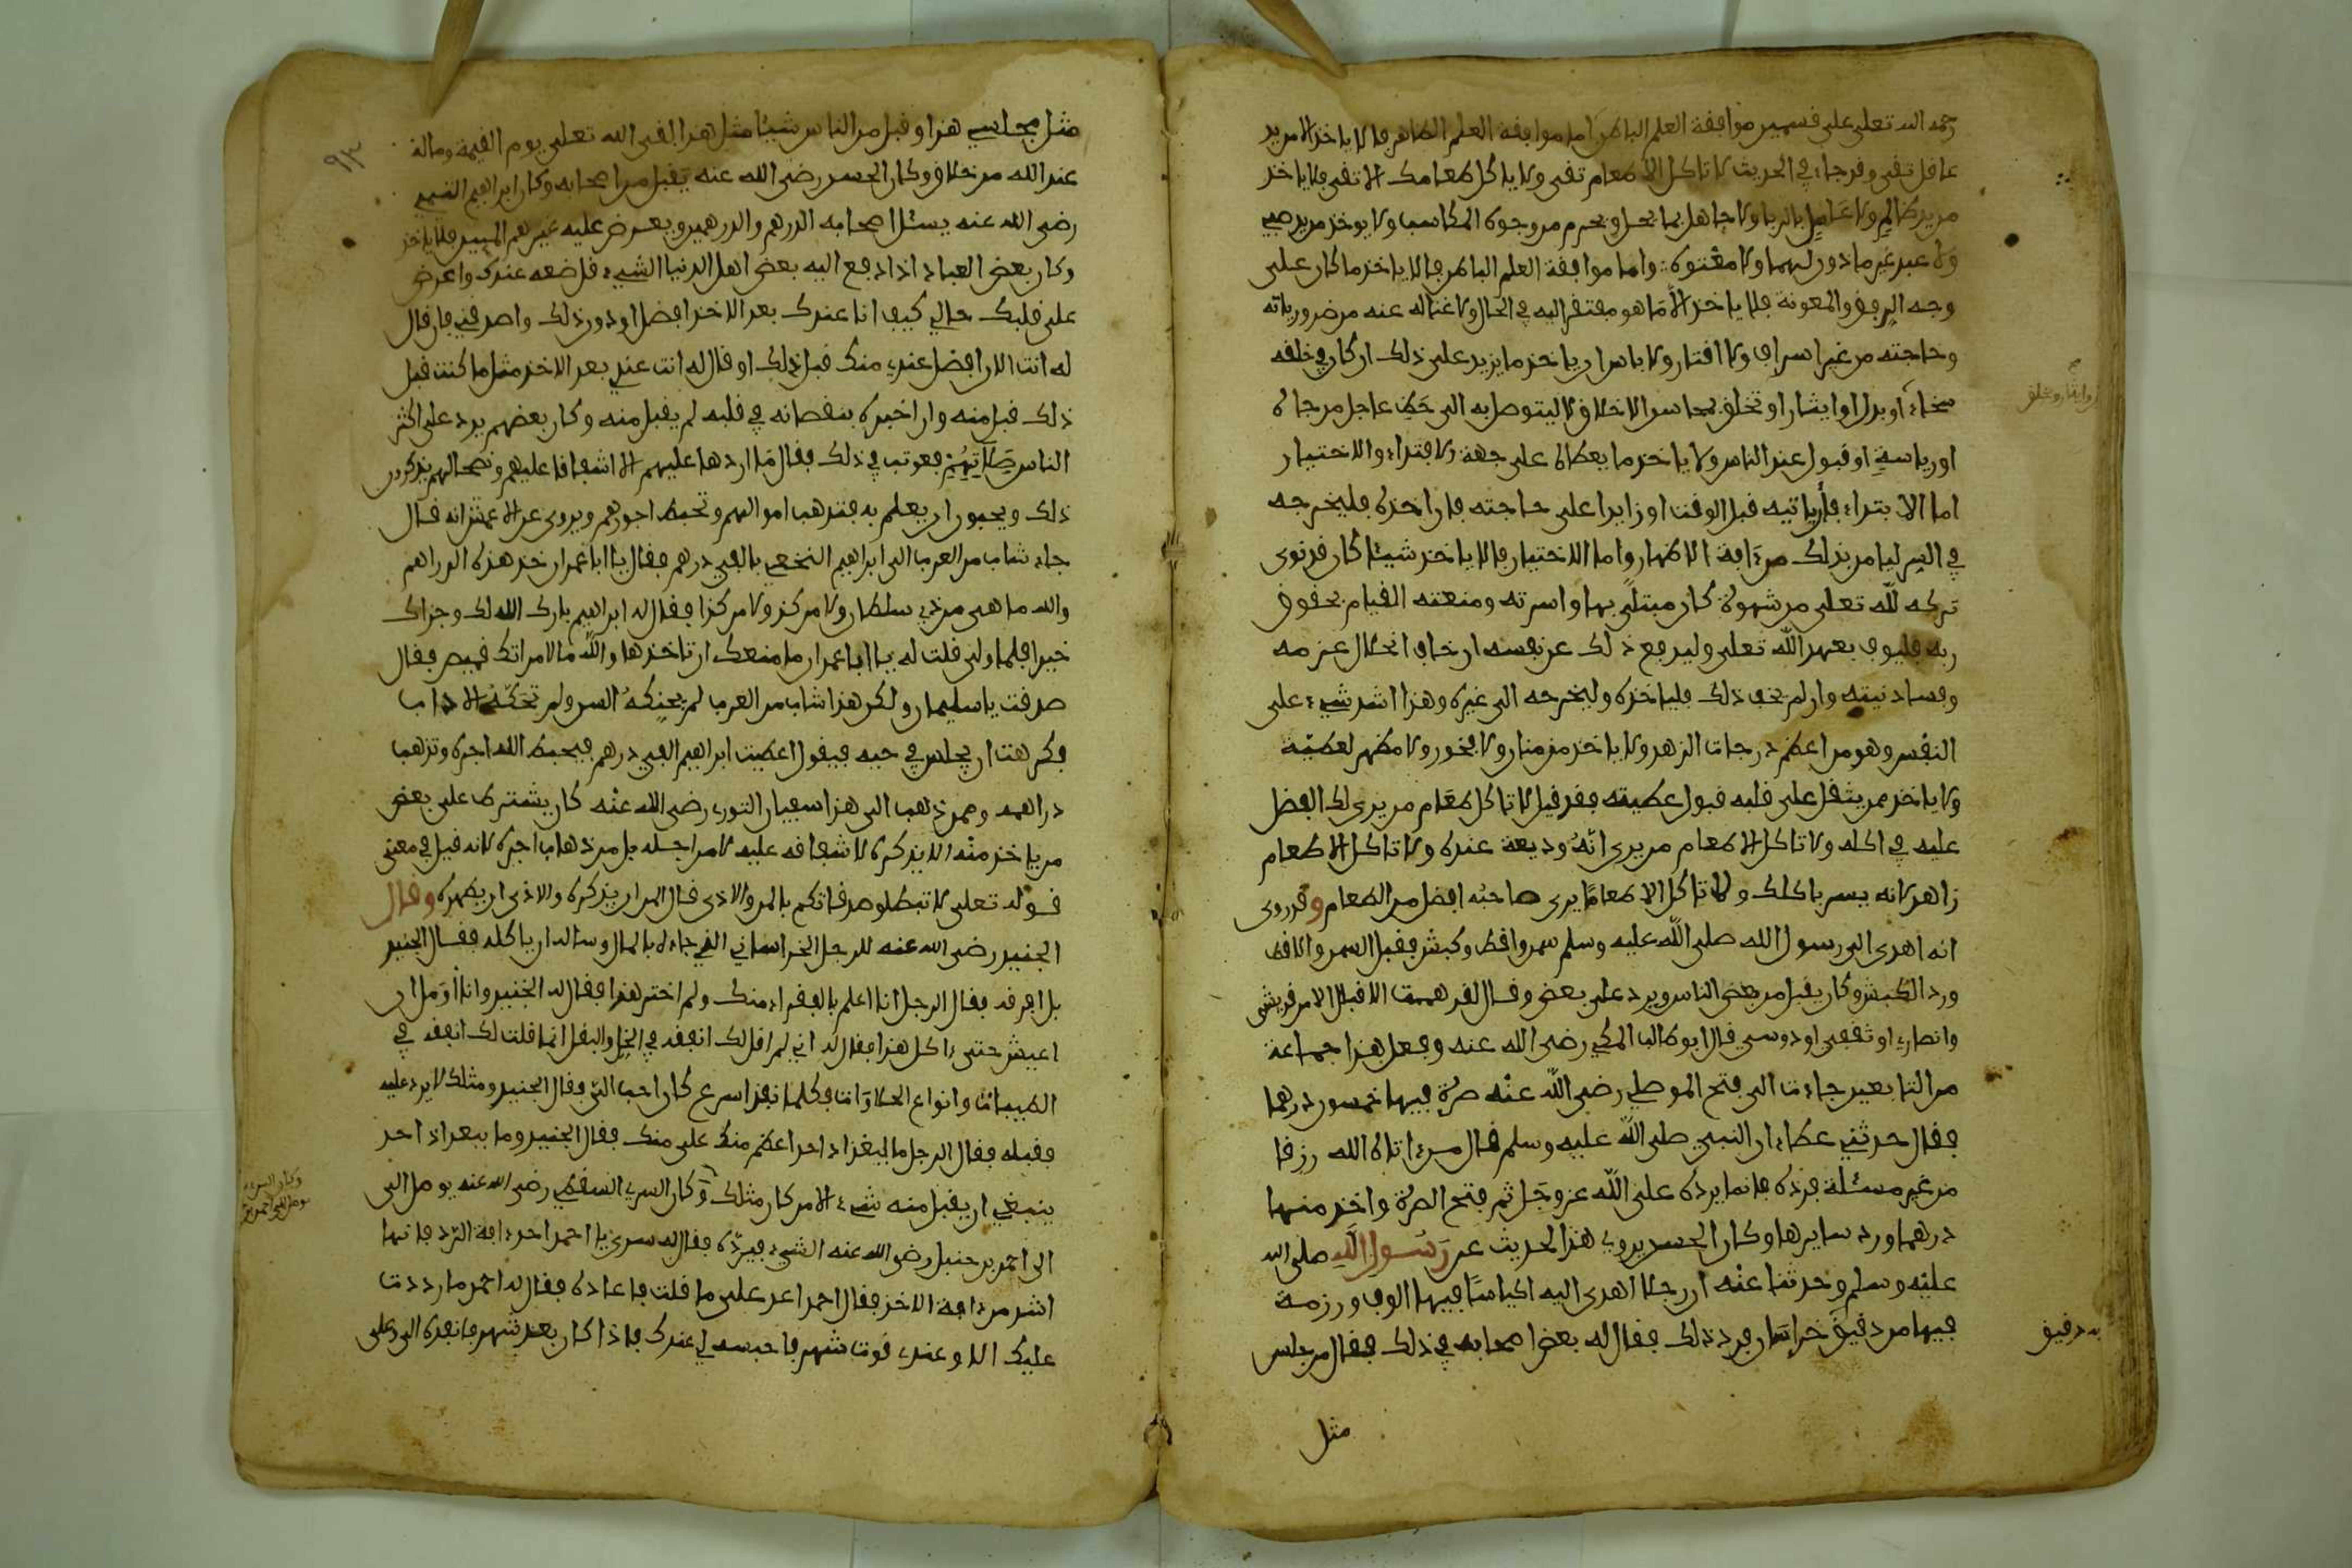 رحمه الله تعلى على قسمين موافقة العلم الباطن اما موافقة العلم الظاهر فالا ياخذ الا من يد
عاقل تقي وقد جاء في الحديث لا تاكل الا طعام تقي ولا ياكل طعامك الا تقي فلا ياخذ
من يد ظالم ولا عاصل بالربا ولا جاهل بما يحل ويحرم من وجوه المكاسب ولا يوخذ من يد صبي
ولا عبد غير ماذون لهما ولا معتوه واما موافقة العلم الباطن فالا ياخذ ما كان على
وجه الرفق والمعونة فلا ياخذ الا ما هو مفتقر اليه في الحال ولا غنا له عنه من ضرورياته
وحاجته من غير اسراف ولا اقتار ولا باس ان ياخذ ما يزيد على ذلك ان كان في خلقه
سخاء او بذل او ايثار او تخلق بمحاسن الاخلاق لا ليتوصل به الى حظ عاجل من جاه
او رياسة او قبول عند الناس ولا ياخذ ما يعطاه على جهة الابتداء والاختبار
اما الابتداء فان ياتيه قبل الوقت او زايدا على حاجته فان اخذه فليخرجه
في السر ليامن بذلك من افة الاظهار واما الاختبار فالا ياخذ شيئا كان قد نوى
تركه لله تعلى من شهوة كان مبتلى بها واسرته ومنعته القيام بحقوق
ربه فليوف بعهد الله تعلى وليدفع ذلك عن نفسه ان خاف انحلال عزمه
وفساد نيته وان لم يخف ذلك فلياخذه وليخرجه الى غيره وهذا اشد شيء على
النفس وهو من اعظم درجات الزهد ولا ياخذ من منان ولا فخور ولا مظهر لعطية
ولا ياخذ ممن يثقل على قلبه قبول عطيته فقد قيل لا تاكل طعام من يرى لك الفضل
عليه في اكله ولا تاكل الا طعام من يرى انه وديعة عنده ولا تاكل الا طعام
زاهد لانه يسر باكلك ولا تاكل الا طعاما يرى صاحبه افضل من الطعام وقد روي
انه اهدى الى رسول الله صلى الله عليه وسلم سمن واقط وكبش فقبل السمن والاقط
ورد الكبش وكان يقبل من بعض الناس ويرد على بعض وقال لقد هممت الا اقبل الا من قريشي
وانصاري او ثقفي او دوسي قال ابو طالب المكي رضي الله عنه وفعل هذا جماعة
من التابعين جاءت الى فتح الموصلي رضي الله عنه صرة فيها خمسون درهما
فقال حدثني عطاء ان النبي صلى الله عليه وسلم قال من اتاه الله رزقا
من غير مسئلة فرده فانما يرده على الله عز وجل ثم فتح الصرة واخذ منها
درهما ورد سايرها وكان الحسن يروي هذا الحديث عن رسول الله صلى الله
عليه وسلم وحدثنا عنه ان رجلا اهدى اليه اكياسا فيها الوف ورزمة
فيها من دقيق خراسان فرد ذلك فقال له بعض اصحابه في ذلك فقال من جلس
مثل
به دقيق
مثل مجلسي هذا وقبل من الناس شيئا مثل هذا لقي الله تعلى يوم القيمة وماله
عند الله من خلاق وكان الحسن رضي الله عنه يقبل من اصحابه وكان ابراهيم التيمي
رضي الله عنه يسئل اصحابه الدرهم والدرهمين ويعرض عليه غيرهم الميين فلا ياخذ
وكان بعض العباد اذا دفع اليه بعض اهل الدنيا الشيء قل ضعه عندك واعرض
على قلبك حالي كيف انا عندك بعد الاخذ افضل او دون ذلك واصدقني فان قال
له انت الان افضل عندي منك قبل ذلك او قال له انت عندي بعد الاخذ مثل ما كنت قبل
ذلك قبل منه وان اخبره بنقصانه في قلبه لم يقبل منه وكان بعضهم يرد على اكثر
الناس صلاتهم فعوتب في ذلك فقال ما اردها عليهم الا اشفاقا عليهم ونصحا لهم يذكرون
ذلك ويحبون ان يعلم به فتذهب اموالهم وتحبط اجورهم ويروى عن الاعمش انه قال
جاء شاب من العرب الى ابراهيم النخعي بالفي درهم فقال يا ابا عمران خذ هذه الدراهم
والله ما هي من ذي سلطان ولا من كذا ولا من كذا فقال له ابراهيم بارك الله لك وجزاك
خيرا فلما ولى قلت له يا ابا عمران ما منعك ان تاخذها والله ما لامراتك قميص فقال
صدقت يا سليمان ولكن هذا شاب من العرب لم يحنكه السن ولم تحكه الاداب
فكرهت ان يجلس في حيه فيقول اعطيت ابراهيم الفي درهم فيحبط الله اجره وتذهب
دراهمه وممن ذهب الى هذا سفيان الثوري رضي الله عنه كان يشترط على بعض
من ياخذ منه الا يذكره لا شفاقه عليه لا من اجله بل من ذهاب اجره لانه قيل في معنى
قوله تعلى لا تبطلوا صدقاتكم بالمن والاذى قال المن ان يذكره والاذى ان يظهره وقال
الجنيد رضي الله عنه للرجل الخراساني الذي جاءه بالمال وساله ان ياكله فقال الجنيد
بل افرقه فقال الرجل انا اعلم بالفقراء منك ولم اختر هذا فقال له الجنيد وانا اؤمل ان
اعيش حتى اكل هذا فقال له اني لم اقل لك انفقه في الخل والبقل انما قلت لك انفقه في
الطيبات وانواع الحلاوات فكلما نفذ اسرع كان احب الي فقال الجنيد ومثلك لا يرد عليه
فقبله فقال الرجل ما ببغداد احد اعظم منك على منك فقال الجنيد وما ببغداد احد
ينبغي ان يقبل منه شيء الا من كان مثلك وكان السري السقطي رضي الله عنه يوصل الى
الى احمد بن حنبل رضي الله عنه الشيء فيرده فقال له سري يا احمد احذر افة الرد فانها
اشد من افة الاخذ فقال احمد اعد علي ما قلت فاعاده فقال له احمد ما رددت
عليك الا وعندي قوت شهر فاحبسه لي عندك فاذا كان بعد شهر فانفذه الي وعلى
٩٣